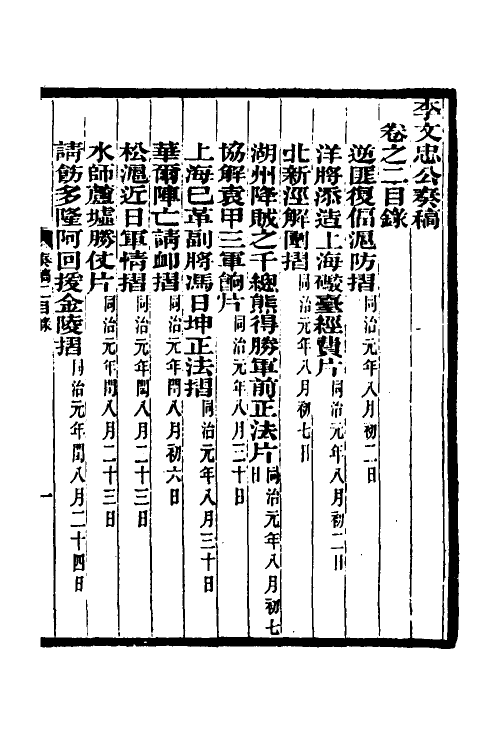 李文忠公奏稿
卷之二目錄
逆匪復偪滬防摺同治元年八月初二日
洋將添造上海礮臺經費片同治元年八月初二日
北新涇解圍摺同治元年八月初七日
湖州降賊之千總熊得勝軍前正法片同治元年八月初七日
協解袁甲三軍餉片同治元年八月三十日
上海已革副將馮日坤正法摺同治元年八月三十日
華爾陣亡請卹摺同治元年閏八月初六日
松滬近日軍情摺同治元年閏八月二十三日
水師蘆墟勝仗片同治元年閏八月二十三日
請飭多隆阿回援金陵摺同治元年閏八月二十四日
奏稿二目錄
一